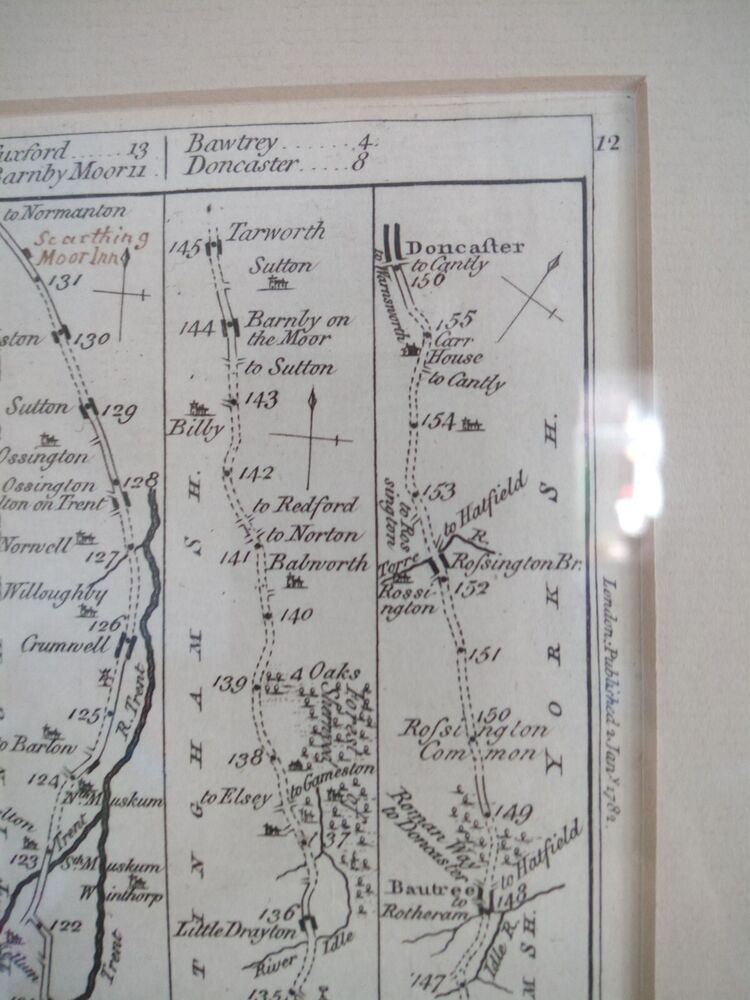 uxford 13
Barnby Moor 11
Bawtrey 4
Doncaster 8
12
to Normanton
Scarthing
Moor Inn
131
130
Sutton
129
Ossington
128
Ossington
lton on Trent
Norwell
127
Willoughby
126
Crumwell
R. Trent
125
to Barlow
124
Nth. Muskum
Trent
123
Sth. Muskum
Winthorp
122
Trent
145
Tarworth
Sutton
144
Barnby on
the Moor
to Sutton
143
Bilby
142
to Redford
to Norton
141
Babworth
140
139
4 Oaks
Forest
138
to Gameston
to Elsey
137
136
Little Drayton
River Idle
135
T I N G H A M S H.
Doncaster
to Cantly
156
to Warmsworth
155
Carr
House
to Cantly
154
153
to Ros
sington
to Hatfield
R.
Torre
Rossington Br.
Rossi
ngton
152
151
150
Rossington
Common
149
Roman Way
to Doncaster
to Hatfield
Bautree
148
to
Rotheram
Idle R.
147
Y O R K S H.
SH.
London, Published 2 Jany. 1782.